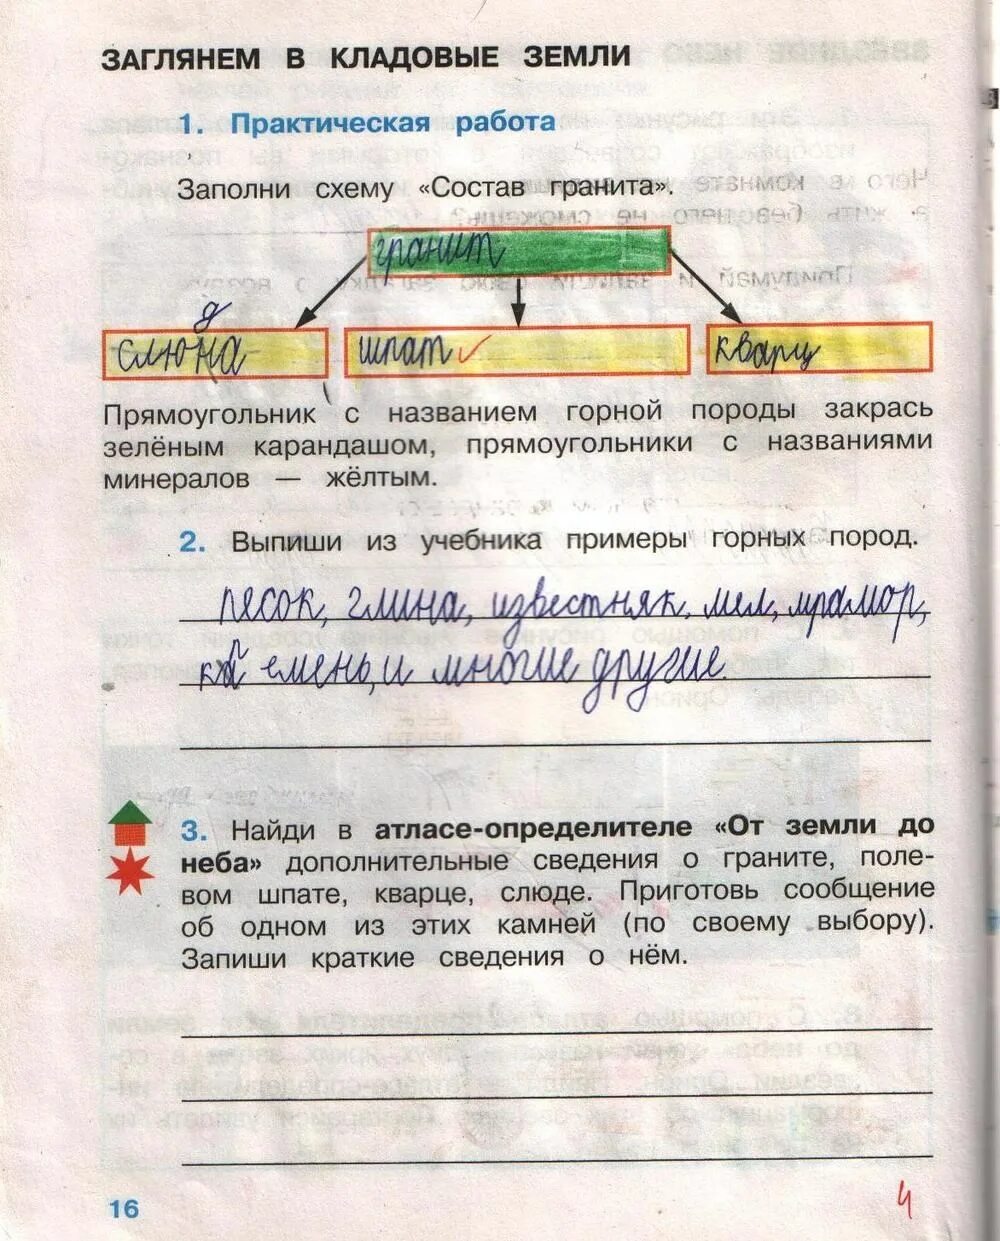 ЗАГЛЯНЕМ В КЛАДОВЫЕ ЗЕМЛИ
1. Практическая работа
Заполни схему «Состав гранита».
гранит
д
слюна шпат ✓ кварц
Прямоугольник с названием горной породы закрась
зелёным карандашом, прямоугольники с названиями
минералов — жёлтым.
2. Выпиши из учебника примеры горных пород.
песок, глина, известняк, мел, мрамор,
кремень, и многие другие.
3. Найди в атласе-определителе «От земли до
неба» дополнительные сведения о граните, поле-
вом шпате, кварце, слюде. Приготовь сообщение
об одном из этих камней (по своему выбору).
Запиши краткие сведения о нём.
16
4